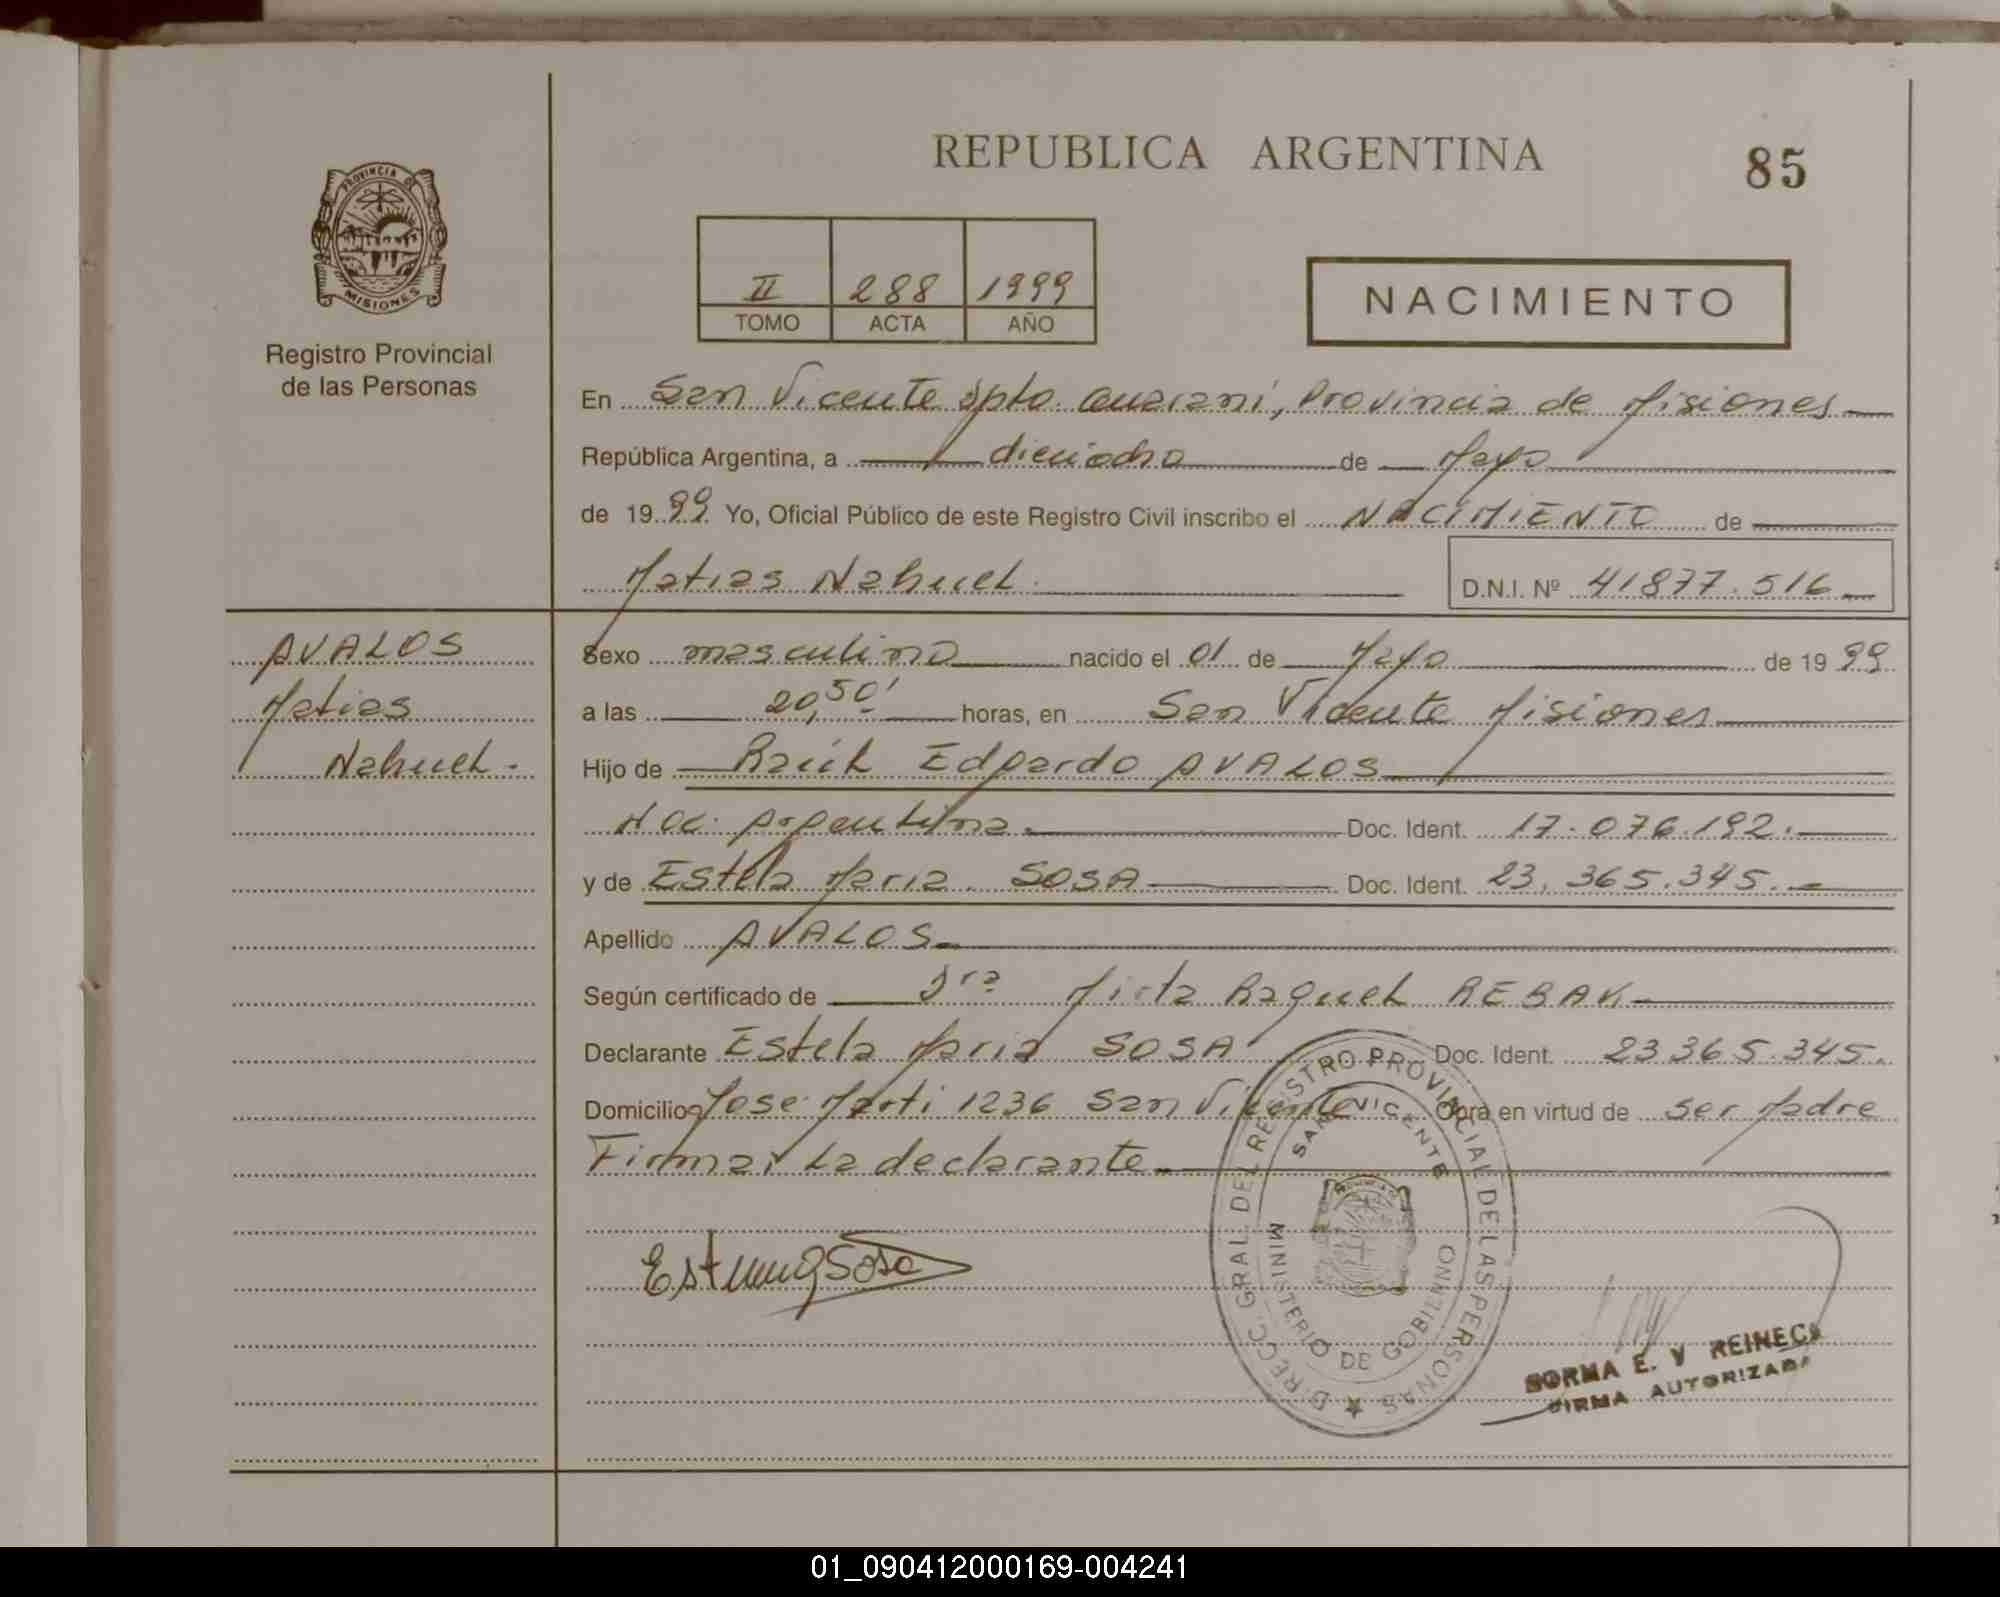 REPUBLICA ARGENTINA
85
PROVINCIA DE
MISIONES
Registro Provincial
de las Personas
II 288 1999
TOMO ACTA AÑO
NACIMIENTO
En San Vicente Dpto. Guaraní, Provincia de Misiones
República Argentina, a dieciocho de Mayo
de 1999. Yo, Oficial Público de este Registro Civil inscribo el NACIMIENTO de
Matias Nahuel. D.N.I. Nº 41877.516
AVALOS
Matias
Nahuel.
Sexo masculino nacido el 01 de Mayo de 1999
a las 20,50' horas, en San Vicente Misiones
Hijo de Raúl Edgardo AVALOS
Nac. Argentina. Doc. Ident. 17.076.192.
y de Estela Maria SOSA Doc. Ident. 23.365.345.
Apellido AVALOS
Según certificado de Dra Mirta Raquel REBAK
Declarante Estela Maria SOSA Doc. Ident. 23365.345.
Domicilio Jose Marti 1236 San Vicente Obra en virtud de ser Madre
Firma: La declarante
DIRECC. GRAL. DEL REGISTRO PROVINCIAL DE LAS PERSONAS
SAN VICENTE
MINISTERIO DE GOBIERNO
NORMA E. V REINECK
FIRMA AUTORIZADA
01_090412000169-004241